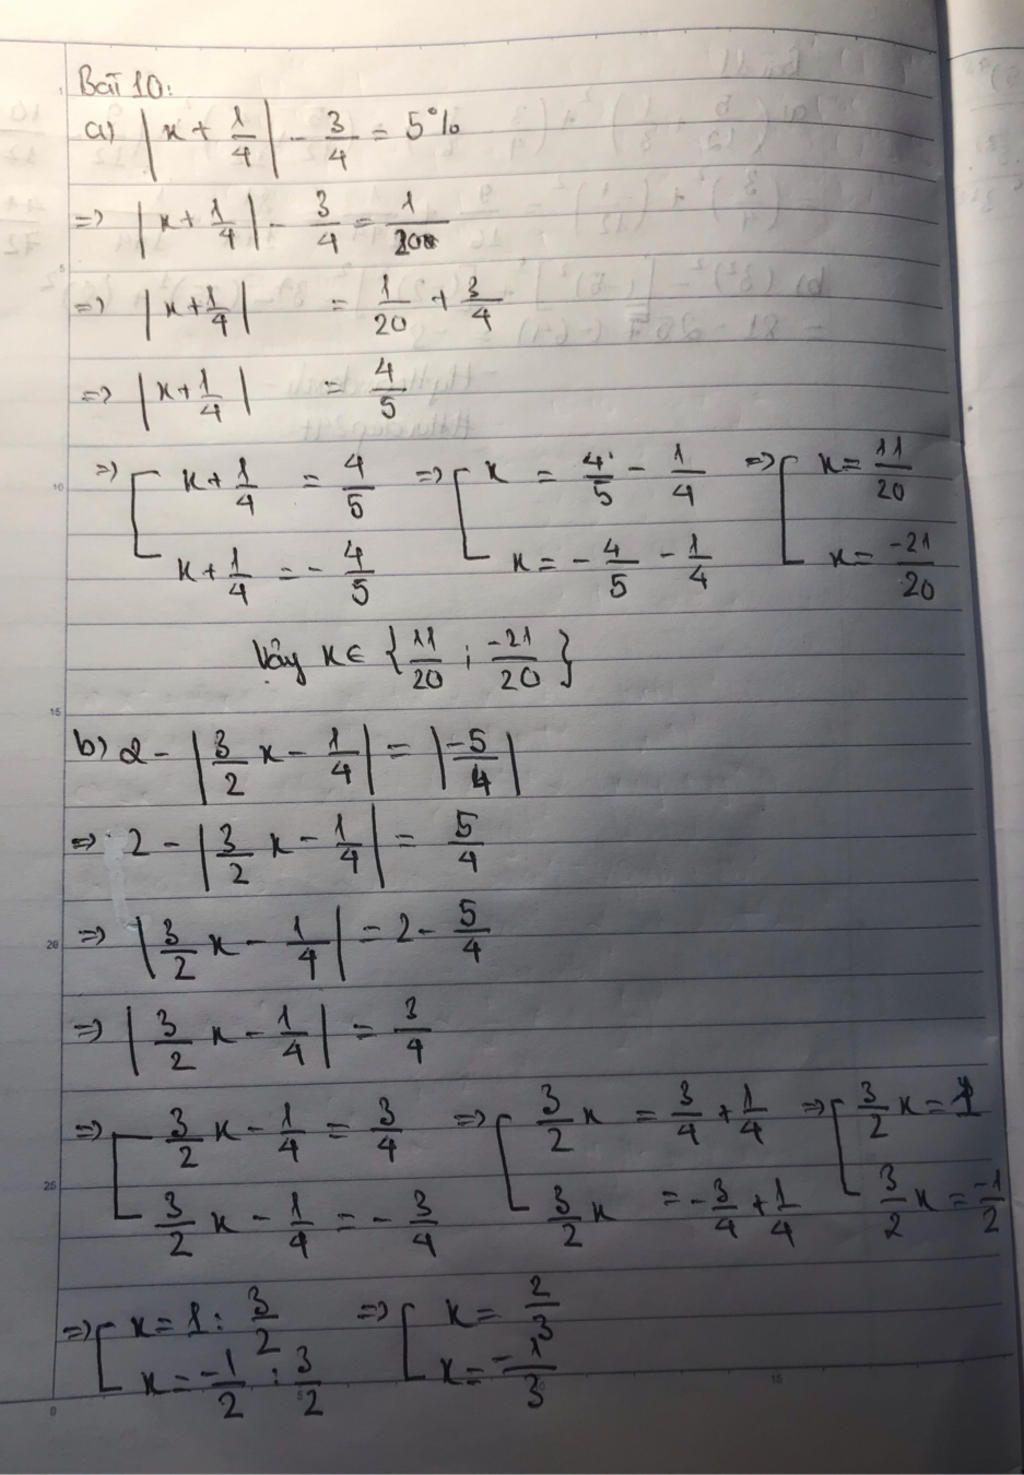 Bài 10:
a) |x + 1/4| - 3/4 = 5%
=> |x + 1/4| - 3/4 = 1/20
=> |x + 1/4| = 1/20 + 3/4
=> |x + 1/4| = 4/5
=> [ x + 1/4 = 4/5 => [ x = 4/5 - 1/4 => [ x = 11/20
x + 1/4 = - 4/5 x = - 4/5 - 1/4 x = -21/20
Vậy x ∈ {11/20 ; -21/20}
b) 2 - |3/2 x - 1/4| = |-5/4|
=> 2 - |3/2 x - 1/4| = 5/4
=> |3/2 x - 1/4| = 2 - 5/4
=> |3/2 x - 1/4| = 3/4
=> [ 3/2 x - 1/4 = 3/4 => [ 3/2 x = 3/4 + 1/4 => [ 3/2 x = 1
3/2 x - 1/4 = - 3/4 3/2 x = - 3/4 + 1/4 3/2 x = -1/2
=> [ x = 1 : 3/2 => [ x = 2/3
x = -1/2 : 3/2 x = -1/3